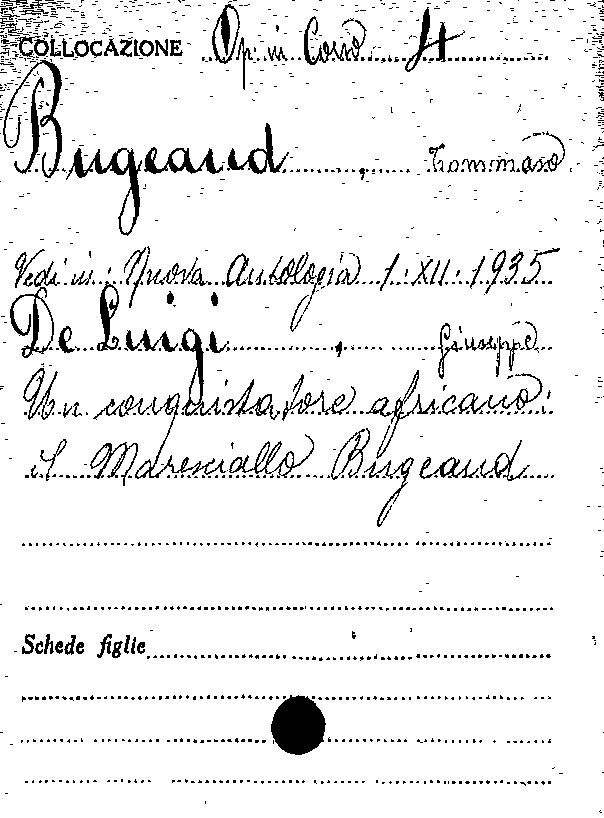 COLLOCAZIONE Op. in Corso 4
Bugeaud, Tommaso
Vedi in: Nuova Antologia 1.XII.1935
De Luigi, Giuseppe
Un conquistatore africano:
il Maresciallo Bugeaud
Schede figlie